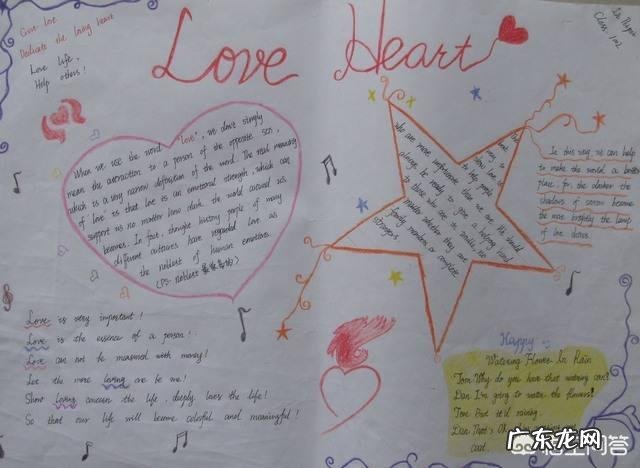 Give love
Dedicate the loving heart
Love life,
Help others!
Love Heart
Class 1102
When we use the word "love", we don't simply
mean the attraction to a person of the opposite sex,
which is a very narrow definition of the word. The real meaning
of 'love' is that love is an emotional strength, which can
support us no matter how dark the world around us
becomes. In fact, throught history people of many
different cultures have regarded love as
the noblest of human emotions.
(PS: noblest 最崇高的)
to help people
who are more unfortunate than we are. We should
always be ready to give a helping hand
to those who are in
matter whether they are
family members or complete
strangers
In this way we can help
to make the world a better
place, for the darker the
shadows of sorrow become
the more brightly the lamp
of love shines.
Love is very important!
Love is the essence of a person!
Love can not be measured with money!
Let the more loving me be me!
Show loving concern the life, deeply loves the life!
So that our life will become colorful and meaningful!
Happy
Watering Flower In Rain
Tom: Why do you have that watering can?
Dan: I'm going to water the flowers!
Tom: But it's raining.
Dan: That's Ok
coat.
广东龙网
悟空问答